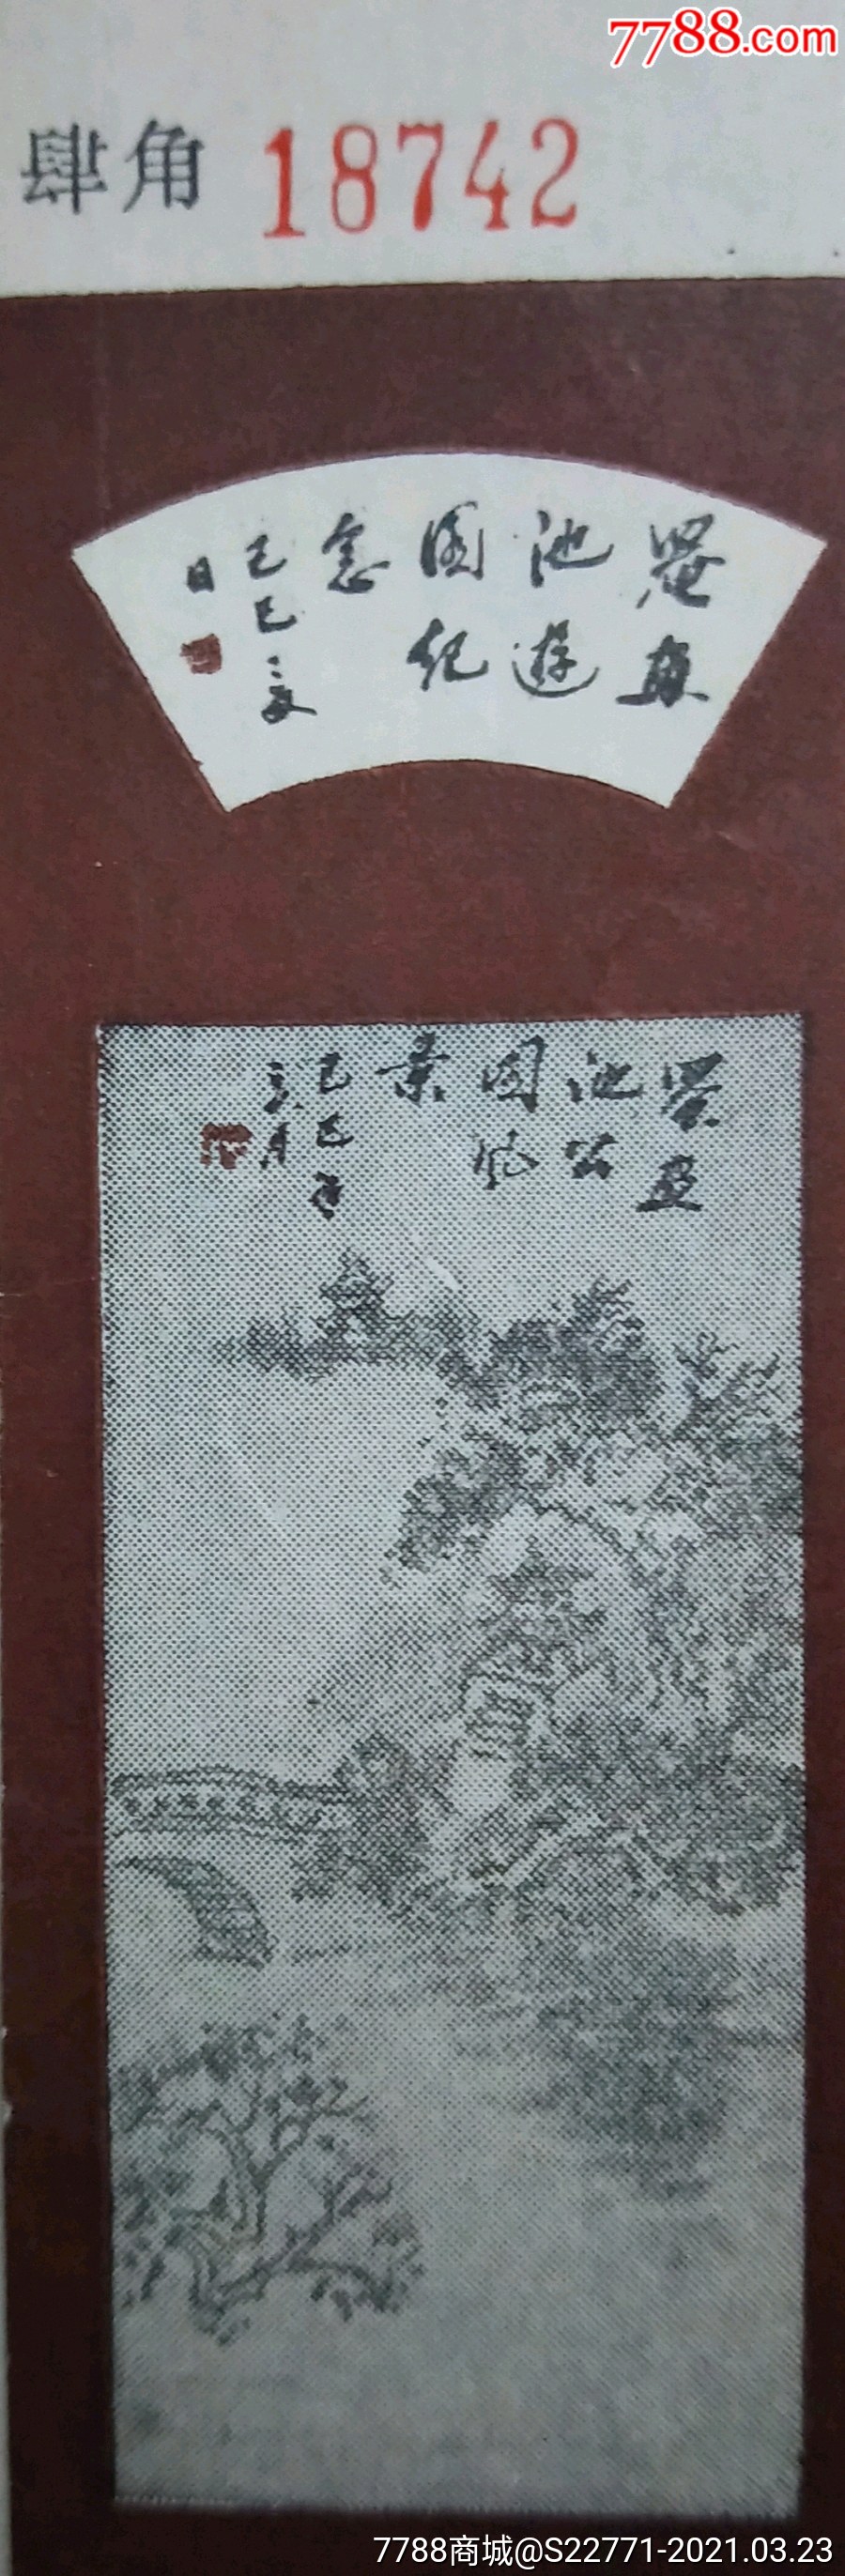 7788.com
肆角 18742
罨画
池遊
園纪
念
己巳之夏
日
罨画
池公
园风
景
己巳年
月
7788商城@S22771-2021.03.23